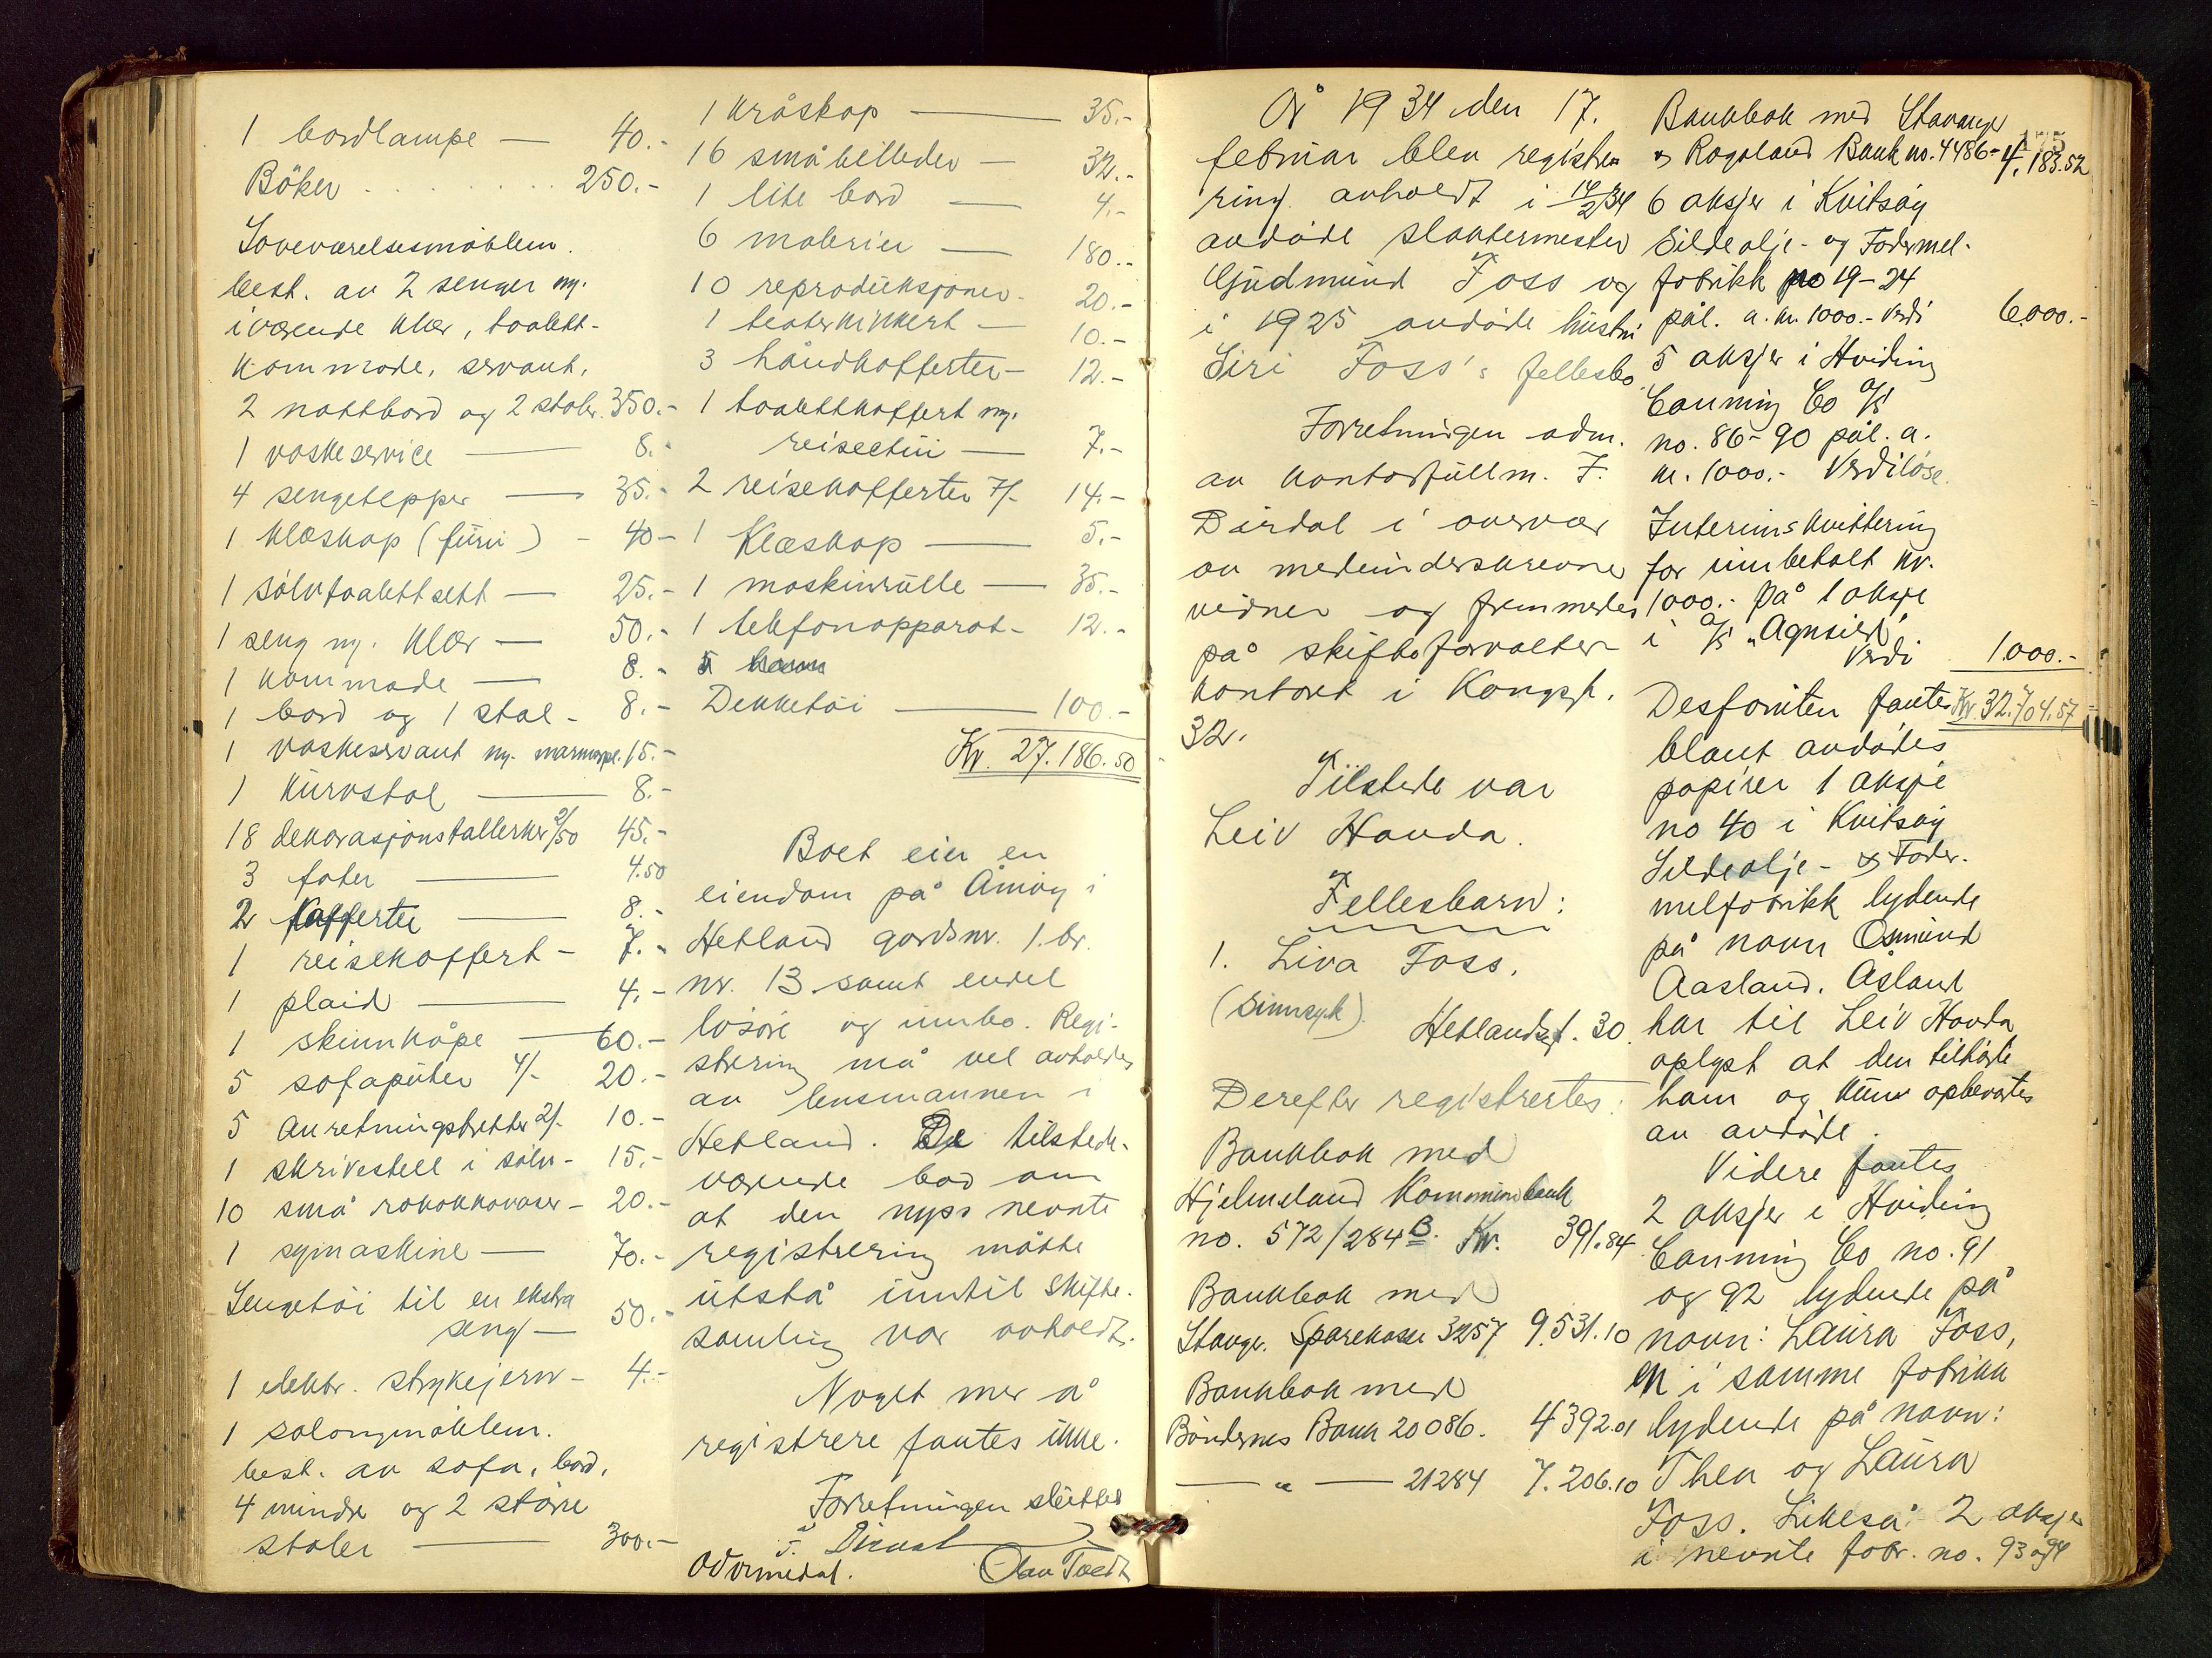 1 bordlampe — 40.-
Böker . . . . . . . . . . 250.-
Soveværelsesmöblem.
best. av 2 senger m/.
iværende klær, toalett-
kommode, servant,
2 nattbord og 2 stoler. 350.-
1 vaskeservice — 8.-
4 sengetepper — 35.-
1 klæskap (furu) - 40-
1 sölvtoalettsett — 25.-
1 seng m/. klær — 50.-
1 kommode — 8.-
1 bord og 1 stol - 8.-
1 vaskeservant m/. marmorpl. 15.-
1 kurvstol — 8.-
18 dekorasjonstallerker 2/50 45.-
3 fater — 4.50
2 kofferter — 8.-
1 reisekoffert - 7.-
1 plaid — 4.-
1 skinnkåpe — 60.-
5 sofaputer 4/- 20.-
5 Anretningsbretter 2/- 10.-
1 skrivestell i sölv - 15.-
10 små rokokkovaser - 20.-
1 symaskine — 70.-
Sengetöi til en ekstra
seng — 50.-
1 elektr. strykejern - 4.-
1 salongmöblem.
best. av sofa, bord,
4 mindre og 2 större
stoler — 300.-
1 kråskap — 35.-
16 småbilleder — 32.-
1 lite bord — 4.-
6 malerier — 180.-
10 reproduksjoner - 20.-
1 teaterkikkert — 10.-
3 håndkofferter - 12.-
1 toalettkoffert m/.
reiseetui — 7.-
2 reisekofferter 7/- 14.-
1 Klæskap — 5.-
1 maskinrulle — 35.-
1 telefonapparat - 12.-
Dekketöi — 100.-
Kr. 27.186.50
Boet eier en
eiendom på Åmöy i
Hetland gardsnr. 1. br.
nr. 13 samt endel
lösöre og innbo. Regi-
strering må vel avholdes
av lensmannen i
Hetland. De tilstede-
værende bad om
at den nyss nevnte
registrering måtte
utstå inntil skifte-
samling var avholdt.
Noget mer å
registrere fantes ikke.
Forretningen sluttet
J. Dirdal
Olav Tvedt
År 1934 den 17.
februar blev registre-
ring avholdt i 14/2 34
avdöde slaktermester
Gudmund Foss og
i 1925 avdöde hustru
Siri Foss's fellesbo.
Forretningen adm.
av kontorfullm. J.
Dirdal i overvær
av medunderskrevne
vidner og fremmedes
på skifteforvalter-
kontoret i Kongsgt.
32.
Tilstede var
Leiv Havda.
Fellesbarn:
1. Liva Foss.
(sinnsyk). Hetlandsgt. 30.
Derefter registrertes:
Bankbok med
Hjelmeland Kommunebank
no. 572/284 B. Kr. 391.84
Bankbok med
Stavgr. Sparekasse 3257 9.531.10
Bankbok med
Böndernes Bank 20086. 4392.01
— " — 21284 7.206.10
175
Bankbok med Stavanger
& Rogaland Bank no. 4486- 4.183.52
6 aksjer i Kvitsöy
Sildeolje- og Fodermel-
fabrikk no 19-24
pål. a. kr. 1000.- Verdi 6000.-
5 aksjer i Hviding
Canning Co A/S
no. 86-90 pål. a.
kr. 1000.- Verdilöse.
Interimskvittering
for innbetalt kr.
1000.- på 1 aksje
i A/S "Agnsild".
Verdi 1.000.-
Kr. 32.704.57
Desforuten fantes
blant avdödes
papirer 1 aksje
no 40 i Kvitsöy
Sildeolje- & Foder-
melfabrikk lydende
på navn Osmund
Aasland. Åsland
har til Leiv Havda
oplyst at den tilhörte
ham og kun opbevartes
av avdöde.
Videre fantes
2 aksjer i Hviding
Canning Co no. 91
og 92 lydende på
navn: Laura Foss,
en i samme fabrikk
lydende på navn:
Thea og Laura
Foss. Likeså 2 aksjer
i nevnte fabr. no. 93 og 94